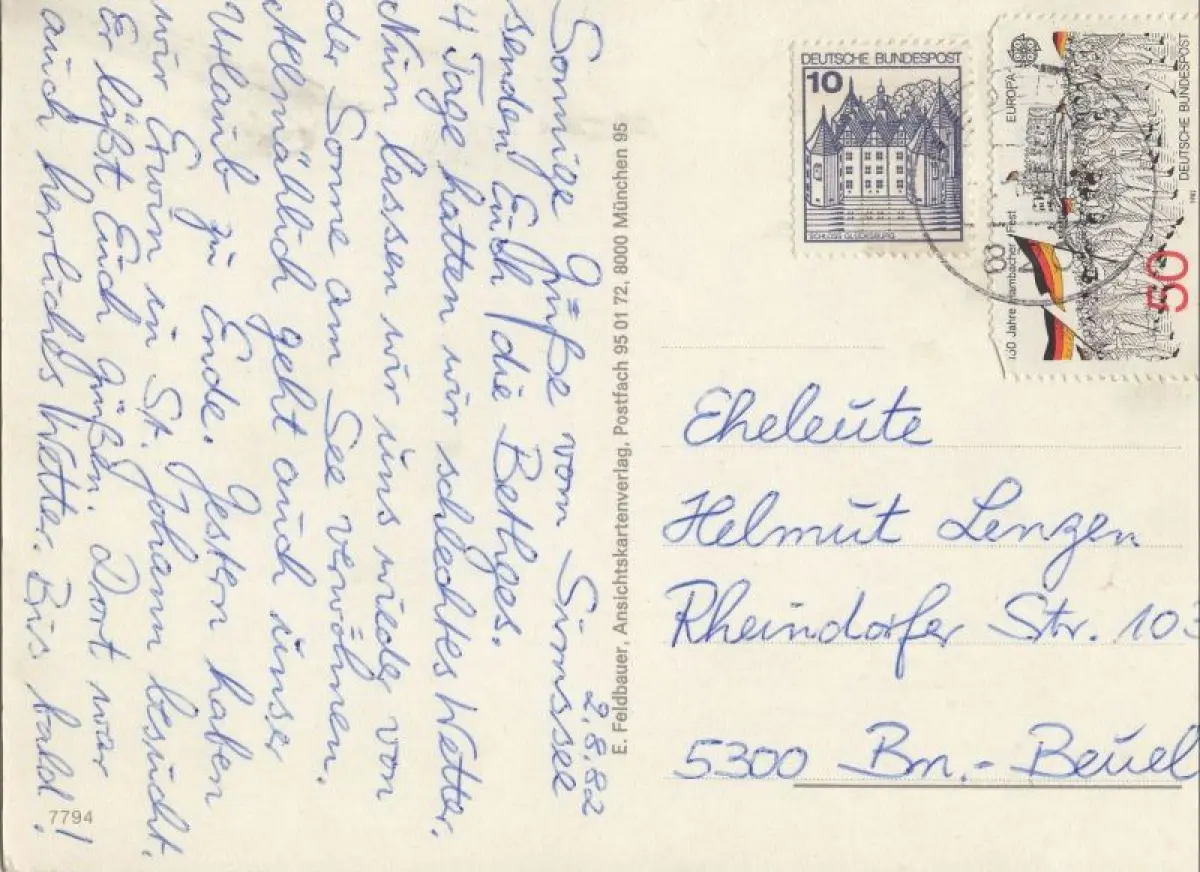 2.8.82
Sonnige Grüße vom Simssee
senden Euch die Bethges.
4 Tage hatten wir schlechtes Wetter.
Nun lassen wir uns wieder von
der Sonne am See verwöhnen.
Allmählich geht auch unser
Urlaub zu Ende. Gestern haben
wir Erwin in St. Johann besucht.
Er läßt Euch grüßen. Dort war
auch herrliches Wetter. Bis bald!
7794
E. Feldbauer, Ansichtskartenverlag, Postfach 95 01 72, 8000 München 95
DEUTSCHE BUNDESPOST
10
SCHLOSS GLÜCKSBURG
EUROPA
150 Jahre Hambacher Fest
DEUTSCHE BUNDESPOST
1982
50
Eheleute
Helmut Lenzen
Rheindorfer Str. 103
5300 Bn.-Beuel